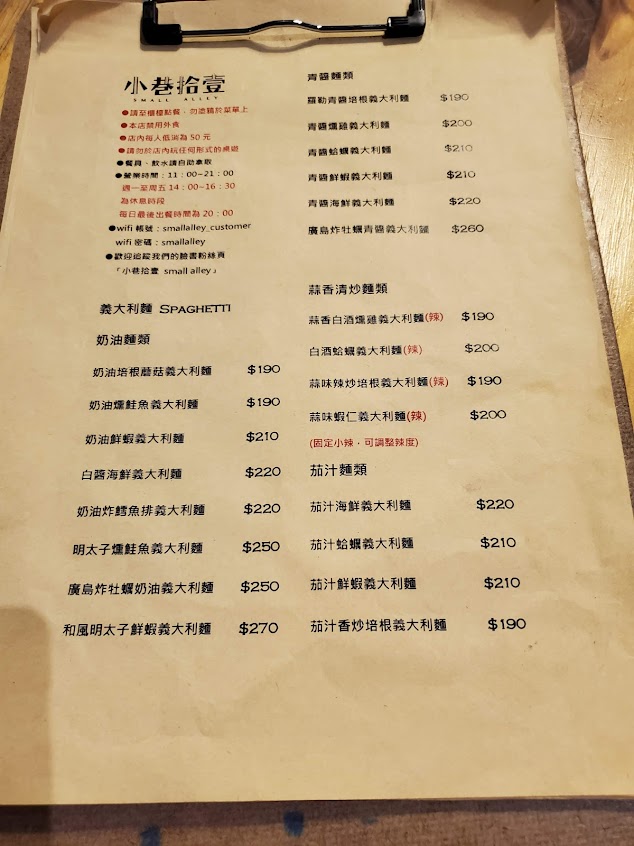 小巷拾壹
SMALL ALLEY
●請至櫃檯點餐，勿塗鴉於菜單上
●本店禁用外食
●店內每人低消為 50 元
●請勿於店內玩任何形式的桌遊
●餐具、飲水請自助拿取
●營業時間：11：00~21：00
週一至周五 14：00~16：30
為休息時段
每日最後出餐時間為 20：00
●wifi 帳號：smallalley_customer
wifi 密碼：smallalley
●歡迎追蹤我們的臉書粉絲頁
「小巷拾壹 small alley」
義大利麵 SPAGHETTI
奶油麵類
奶油培根蘑菇義大利麵 $190
奶油燻鮭魚義大利麵 $190
奶油鮮蝦義大利麵 $210
白醬海鮮義大利麵 $220
奶油炸鱈魚排義大利麵 $220
明太子燻鮭魚義大利麵 $250
廣島炸牡蠣奶油義大利麵 $250
和風明太子鮮蝦義大利麵 $270
青醬麵類
羅勒青醬培根義大利麵 $190
青醬燻雞義大利麵 $200
青醬蛤蠣義大利麵 $210
青醬鮮蝦義大利麵 $210
青醬海鮮義大利麵 $220
廣島炸牡蠣青醬義大利麵 $260
蒜香清炒麵類
蒜香白酒燻雞義大利麵(辣) $190
白酒蛤蠣義大利麵(辣) $200
蒜味辣炒培根義大利麵(辣) $190
蒜味蝦仁義大利麵(辣) $200
(固定小辣，可調整辣度)
茄汁麵類
茄汁海鮮義大利麵 $220
茄汁蛤蠣義大利麵 $210
茄汁鮮蝦義大利麵 $210
茄汁香炒培根義大利麵 $190